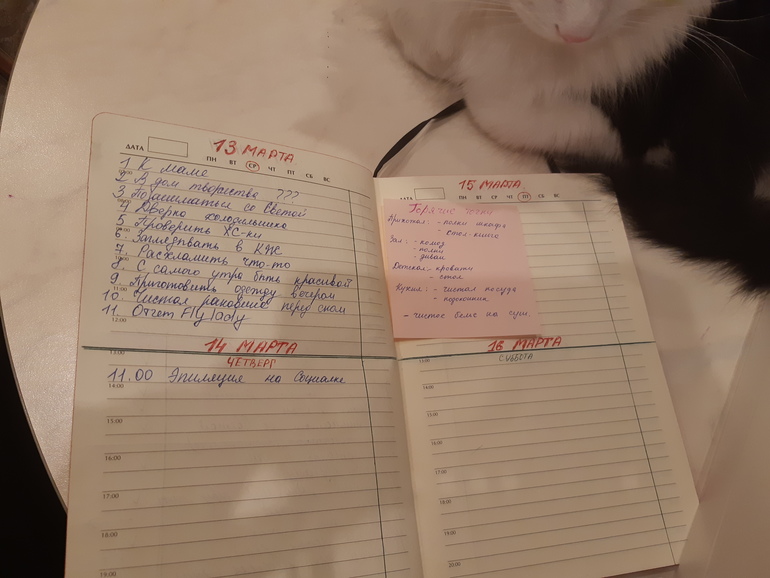 ДАТА
13 МАРТА
ПН ВТ СР ЧТ ПТ СБ ВС
1 К маме
2 В дом творчества ???
3 Позаниматься со Светой
4 Дверка холодильника
5 Проверить ХС-ки
6. Заглядывать в КЖ
7. Расхламить что-то
8. С самого утра быть красивой
9. Приготовить одежду вечером
10. Чистая раковина перед сном
11. Отчет FlyLady
11:00
12:00
14 МАРТА
13:00
ЧЕТВЕРГ
11.00 Эпиляция на Социалке
14:00
15:00
16:00
17:00
18:00
19:00
ДАТА
15 МАРТА
ПН ВТ СР ЧТ ПТ СБ ВС
Горячие точки
Прихожая: - полки шкафа
- стол-книга
Зал: - комод
- полки
- диван
Детская: - кровати
- стол
Кухня: - чистая посуда
- подоконник
- чистое белье на суш.
16 МАРТА
13:00
СУББОТА
14:00
15:00
16:00
17:00
18:00
19:00
20:00